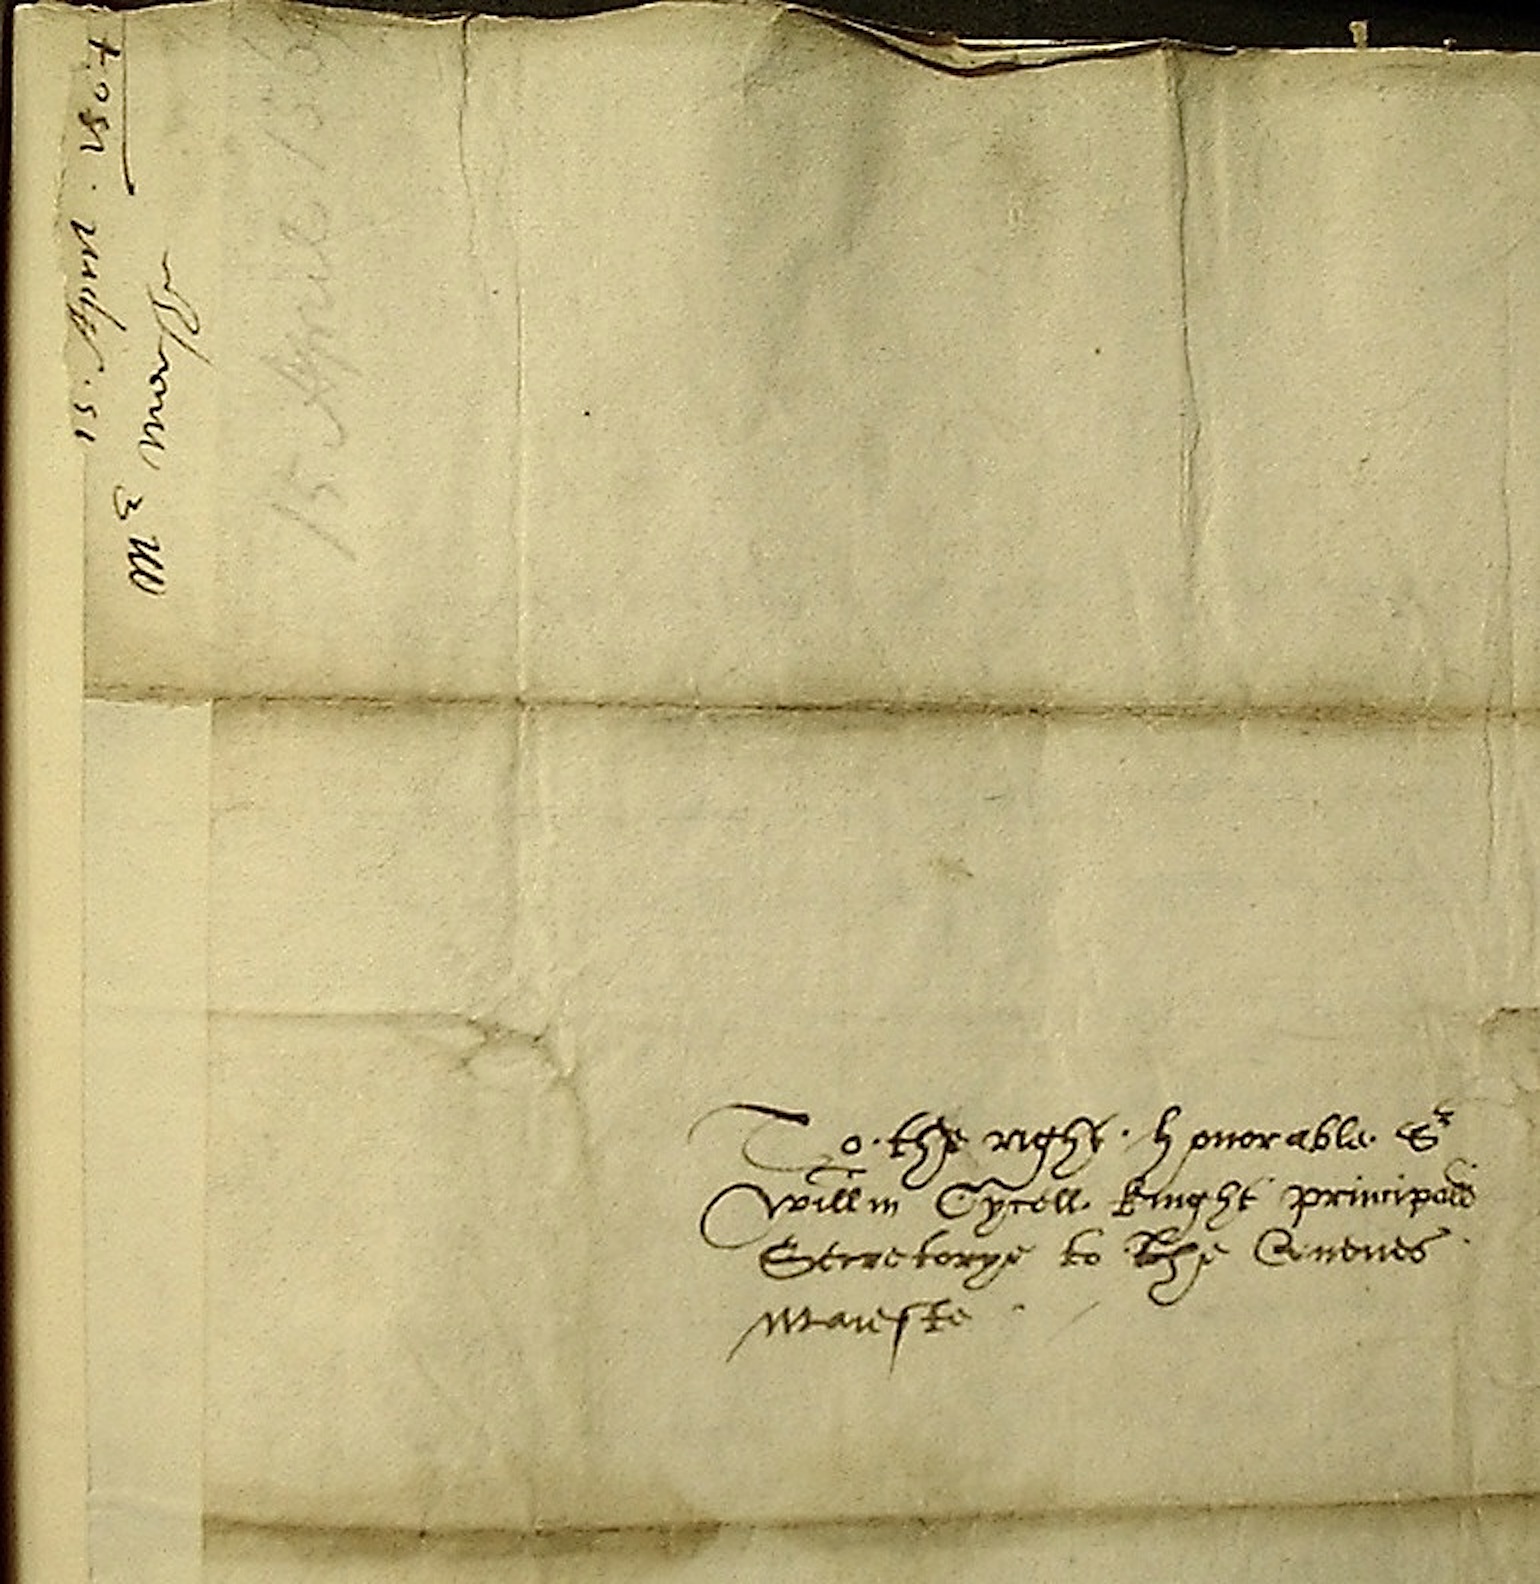 15 . April . 1567
15 April 156
To the right honorable Sr
Willm Cycell knight principall
Secretorye to the Quenes
Maieste